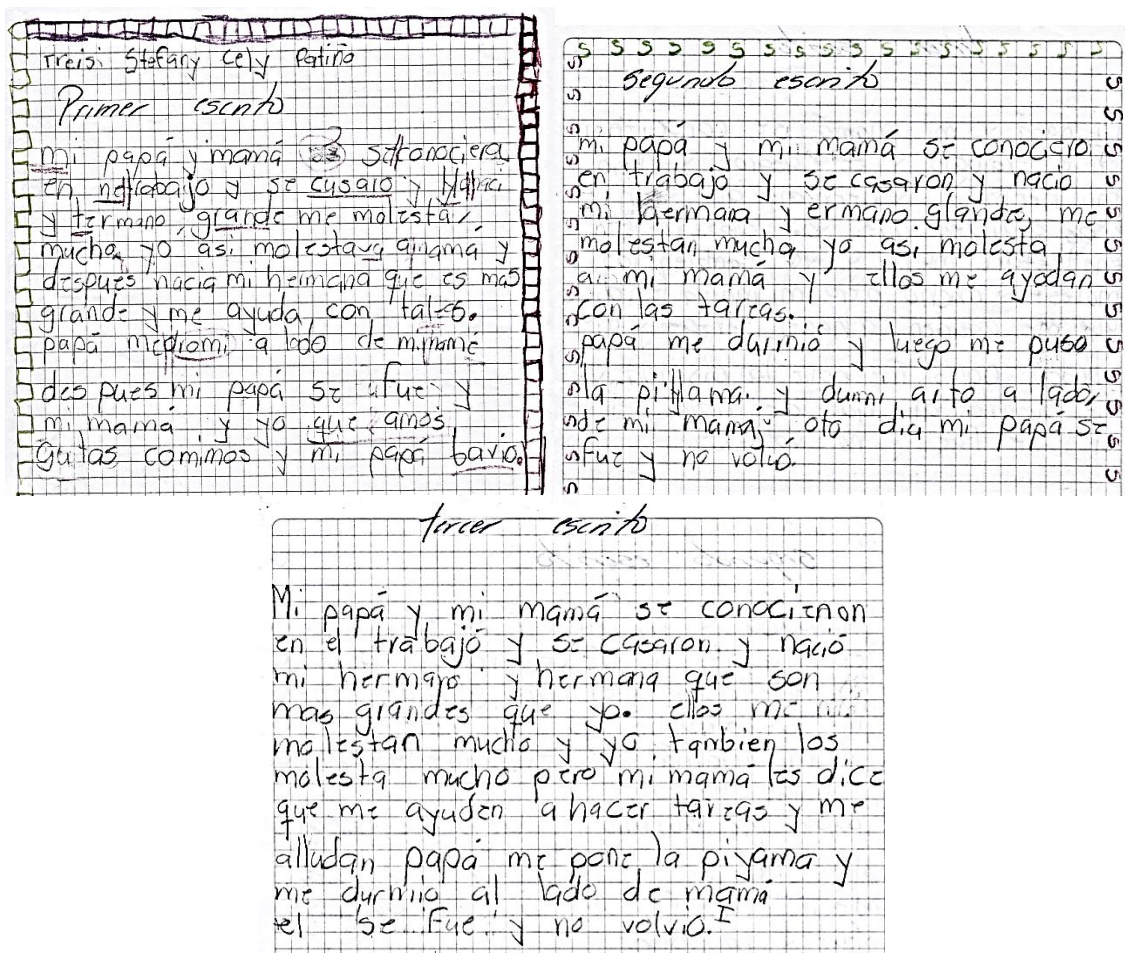 Treisi Stefany Cely Patiño
Primer escrito
mi papá y mamá se conociera
en netrabajo y se cusaro y
y termano grande me molesta
mucha yo asi molestava amamá y
despues nacia mi heimana que es mas
grande y me ayuda con tales.
papá me dromi a lado de mi mamé
despues mi papá se fue y
mi mamá y yo que amos
Guitas comimos y mi papá bavio.
Segundo escrito
mi papá y mi mamá se conociero
en trabajo y se casaron y nacio
mi hermana y ermano glande, me
molestan mucha yo asi molesta
a mi mamá y ellos me ayodan
con las tareas.
papá me durmió y luego me puso
la pillama y dumi a lado
de mi mama, oto dia mi papá se
fue y no volvio.
tercer escrito
Mi papá y mi mamá se conocienon
en el trabajó y se casaron y nació
mi hermano y hermana que son
mas grandes que yo. ellos me
molestan mucho y yo tanbien los
molesta mucho pero mi mamá les dice
que me ayuden a hacer tareas y me
alludan papá me pone la piyama y
me durmio al lado de mamá
el se fue y no volvio.